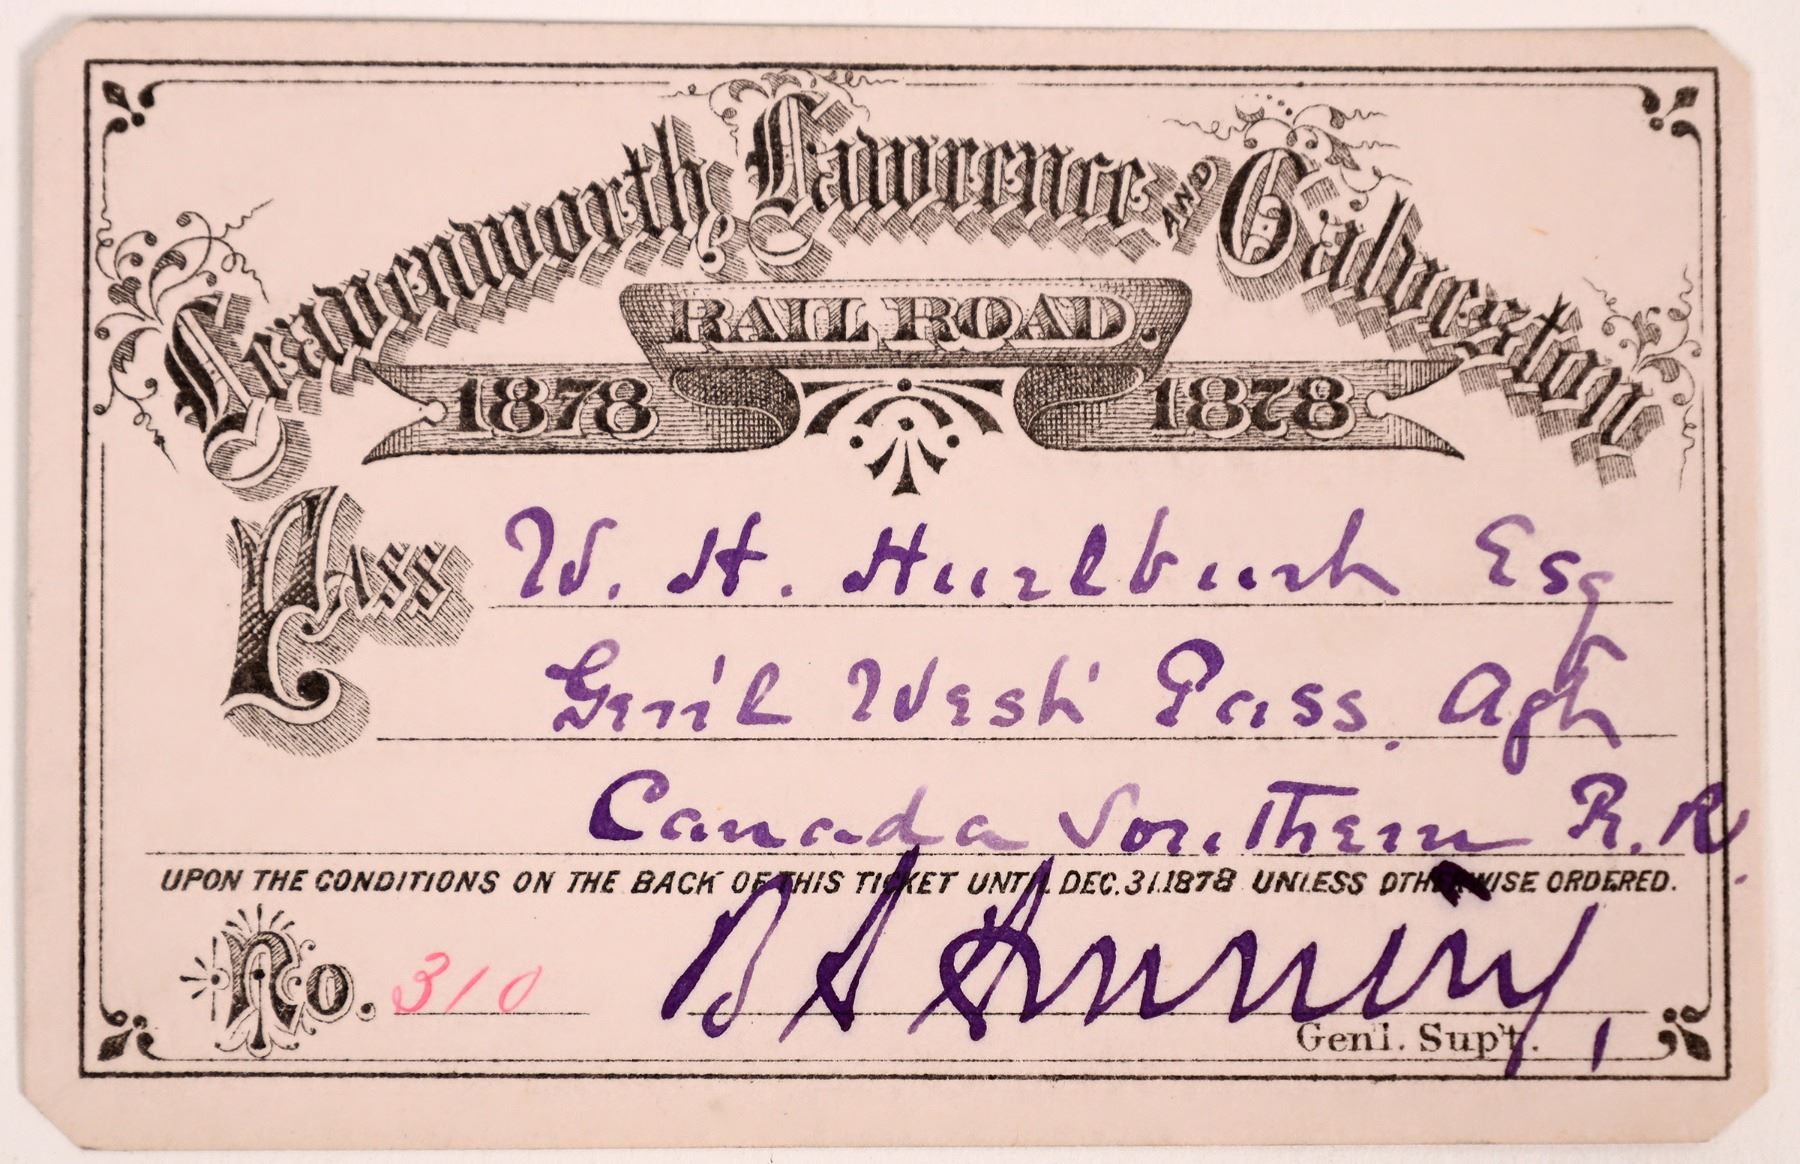 Leavenworth, Lawrence AND Galveston
RAIL ROAD.
1878 1878
Pass W. H. Hurlburt Esq
Gen'l West' Pass. Agt
Canada Southern R. R.
UPON THE CONDITIONS ON THE BACK OF THIS TICKET UNTIL DEC. 31. 1878 UNLESS OTHERWISE ORDERED.
No. 310 B S Henning,
Gen'l. Sup't.